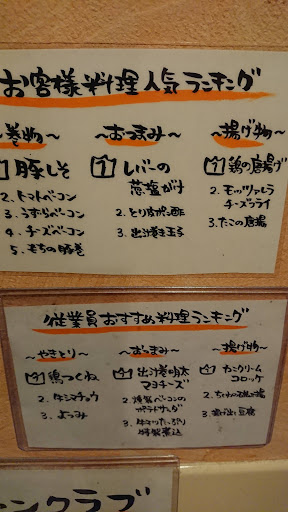 お客様料理人気ランキング
～巻物～
1 豚しそ
2. トマトベーコン
3. うずらベーコン
4. チーズベーコン
5. もちの豚巻
～おつまみ～
1 レバーの
葱塩がけ
2. とり皮ポン酢
3. 出汁巻き玉子
～揚げ物～
1 鶏の唐揚げ
2. モッツァレラ
チーズフライ
3. たこの唐揚
従業員おすすめ料理ランキング
～やきとり～
1 鶏つくね
2. 牛シマチョウ
3. よつみ
～おつまみ～
1 出汁巻明太
マヨチーズ
2. 燻製ベーコンの
ポテトサラダ
3. 牛すじたっぷり
特製煮込
～揚げ物～
1 カニクリーム
コロッケ
3. 揚げ出し豆腐
ンクラブ